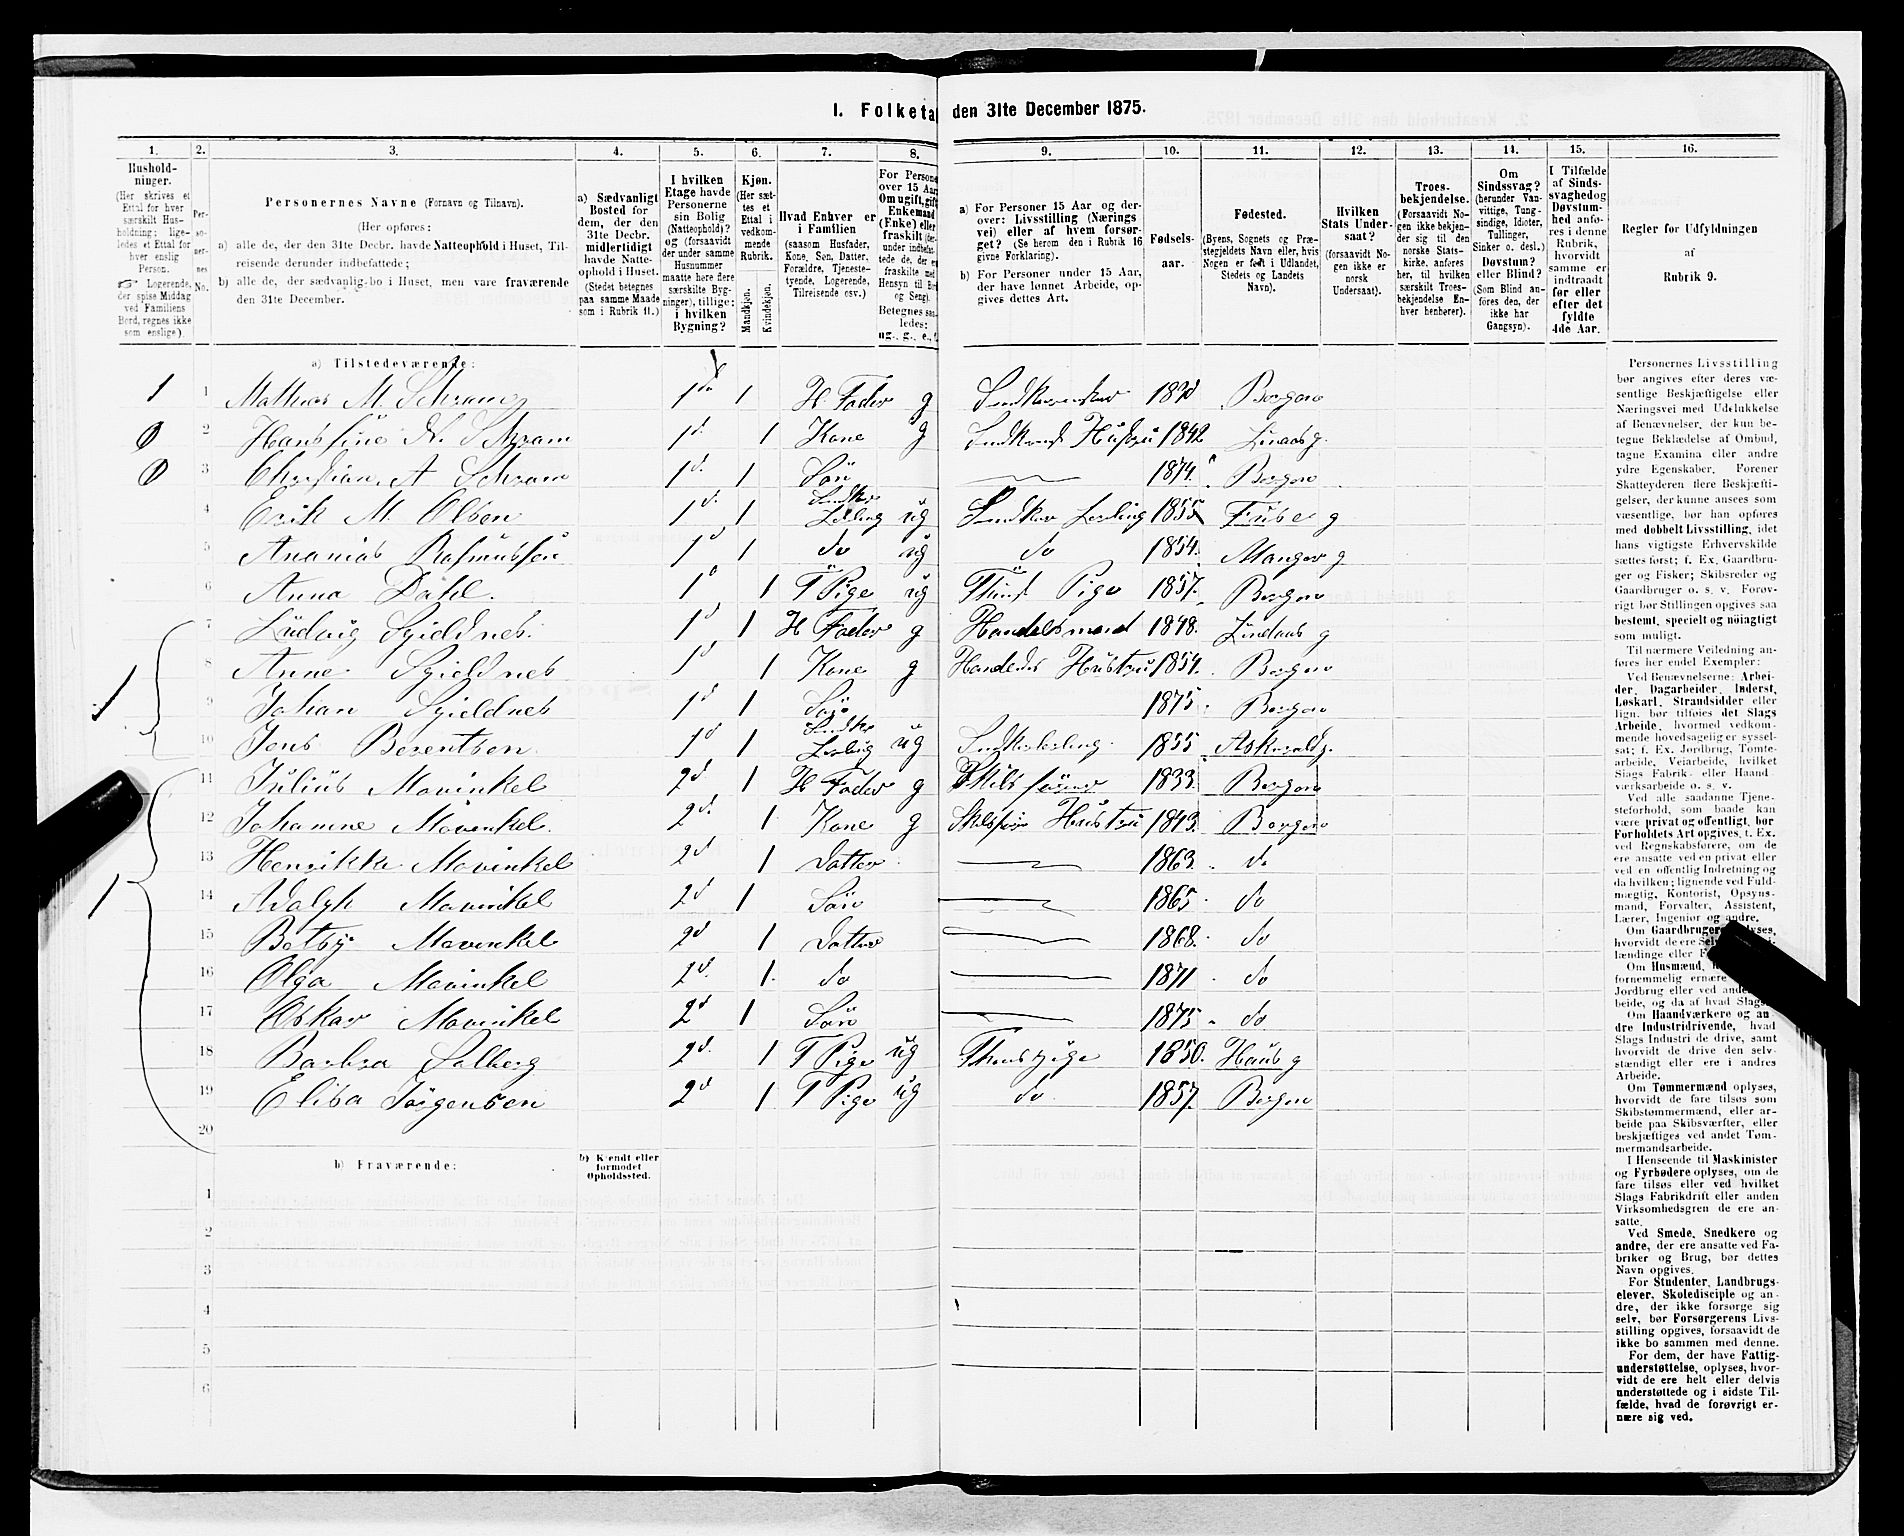 1. Folketæ den 31te December 1875.
1. 2. 3. 4. 5. 6. 7. 8. 9. 10. 11. 12. 13. 14. 15. 16.
Hushold-
ninger.
(Her skrives et
Ettal for hver
særskilt Hus-
holdning; lige-
ledes et Ettal for
hver enslig
Person.
☞ Logerende,
der spise Middag
ved Familiens
Bord, regnes ikke
som enslige).
Per-
so-
ner-
nes
No.
Personernes Navne (Fornavn og Tilnavn).
(Her opføres:
a) alle de, der den 31te Decbr. havde Natteophold i Huset, Til-
reisende derunder indbefattede;
b) alle de, der sædvanlig bo i Huset, men vare fraværende
den 31te December.
a) Sædvanligt
Bosted for
dem, der den
31te Decbr.
midlertidigt
havde Natte-
ophold i Huset.
(Stedet betegnes
paa samme Maade
som i Rubrik 11.)
I hvilken
Etage havde
Personerne
sin Bolig
(Natteophold)?
og (forsaavidt
der under samme
Husnummer
maatte høre flere
særskilte Byg-
ninger), tillige:
i hvilken
Bygning?
Kjøn.
(Her sæt-
tes et
Ettal i
vedkom-
mende
Rubrik.
Mandkjøn.
Kvindekjøn.
Hvad Enhver er
i Familien
(saasom Husfader,
Kone, Søn, Datter,
Forældre, Tjeneste-
tyende, Logerende,
Tilreisende osv.)
For Persone
over 15 Aar
Om ugift, gift
Enkemand
(Enke) eller
fraskilt (der-
under indbefat-
tede de, der e
fraskilte med
Hensyn til Bo
og Seng).
Betegnes saa-
ledes:
ug., g., e., f.
a) For Personer 15 Aar og der-
over: Livsstilling (Nærings
vei) eller af hvem forsør-
get? (Se herom den i Rubrik 16
givne Forklaring).
b) For Personer under 15 Aar,
der have lønnet Arbeide, op-
gives dettes Art.
Fødsels-
aar.
Fødested.
(Byens, Sognets og Præ-
stegjeldets Navn eller, hvis
Nogen er født i Udlandet,
Stedets og Landets
Navn).
Hvilken
Stats Under-
saat?
(forsaavidt No-
gen ikke er
norsk
Undersaat).
Troes-
bekjendelse.
(Forsaavidt No-
gen ikke bekjen-
der sig til den
norske Stats-
kirke, anføres
her, til hvilken
særskilt Troes-
bekjendelse En-
hver henhører).
Om
Sindssvag?
(herunder Van-
vittige, Tung-
sindige, Idioter,
Tullinger,
Sinker o. desl.)
Døvstum?
eller Blind?
(Som Blind an-
føres den, der
ikke har
Gangsyn).
I Tilfælde
af Sinds-
svaghed og
Døvstum-
hed anfø-
res i denne
Rubrik,
hvorvidt
samme er
indtraadt
før eller
efter det
fyldte
4de Aar.
Regler for Udfyldningen
af
Rubrik 9.
a) Tilstedeværende:
1 1 Mathias M. Schram 1 1 H Fader g 18 Bergen
0 2 Hansine N. Schram 1 1 Kone g Hustru 1842 Lindaas g.
0 3 Christian A Schram 1 1 Søn 1874. Bergen
4 Erik M. Olsen 1 1 Snedker Lærling ug Snedker Lærling 1855 g
5 Ananias Rasmussen 1 1 do ug do 1854. Manger g
6 Anna Dahl. 1 1 T Pige ug Thinst Pige 1857. Bergen
7 Ludvig Skjeldnes. 1 1 H Fader g Handelsmand 1848. Lindaas g
1 8 Anne Skjeldnes 1 1 Kone g Hustru 1854. Bergen
9 Johan Skjeldnes 1 1 Søn 1875. Bergen
10 Jens Berentsen. 1 1 Snedker Lærling ug Snedkerlærling 1855 Askevold g.
11 Julius Mowinkel 2 1 H Fader g Skibsfører 1833. Bergen
12 Johanne Mowinkel. 2 1 Kone g Hustru 1843. Bergen
13 Henrikke Mowinkel 2 1 Datter 1863. do
1 14 Adolph Mowinkel 2 1 Søn 1865. do
15 Betsy Mowinkel 2 1 Datter 1868. do
16 Olga Mowinkel 2 1 do 1871 do
17 Oskar Mowinkel 2 1 Søn 1875 do
18 Barbra Solberg 2 1 T Pige ug 1850. Haus g
19 Elisa Jørgensen 2 1 T Pige ug do 1857. Bergen
20
b) Fraværende:
b) Kjendt eller
formodet
Opholdssted.
1
2
3
4
5
6
Personernes Livsstilling
bør angives efter deres væ-
sentlige Beskjæftigelse eller
Næringsvei med Udelukkelse
af Benævnelser, der kun be-
tegne Beklædelse af Ombud,
tagne Examina eller andre
ydre Egenskaber. Forener
Skatteyderen flere Beskjæfti-
gelser, der kunne ansees som
væsentlige, bør han opføres
med dobbelt Livsstilling, idet
hans vigtigste Erhvervskilde
sættes først; f. Ex. Gaardbru-
ger og Fisker; Skibsreder og
Gaardbruger o. s. v. Forøv-
rigt bør Stillingen opgives saa
bestemt, specielt og nøiagtigt
som muligt.
Til nærmere Veiledning an-
føres her endel Exempler:
Ved Benævnelserne: Arbei-
der, Dagarbeider, Inderst,
Løskarl, Strandsidder eller
lign. bør tilføies det Slags
Arbeide, hvormed vedkom-
mende hovedsagelig er syssel-
sat; f. Ex. Jordbrug, Tomte-
arbeide, Veiarbeide, hvilket
Slags Fabrik- eller Haand-
værksarbeide o. s. v.
Ved alle saadanne Tjene-
steforhold, som baade kan
være privat og offentligt, bør
Forholdets Art opgives, t. Ex.
ved Regnskabsførere, om de
ere ansatte ved en privat eller
ved en offentlig Indretning og
da hvilken; lignende ved Fuld-
mægtig, Kontorist, Opsyns-
mand, Forvalter, Assistent,
Lærer, Ingeniør og andre.
Om Gaardbrugere oplyses,
hvorvidt de ere
lændinge eller
Om Husmænd,
fornemmelig ernære
Jordbrug eller ved
beide, og da af hvad Slags
Om Haandværkere og an
dre Industridrivende, hvad
Slags Industri de drive, samt
hvorvidt de drive den selv-
stændigt eller ere i andres
Arbeide.
Om Tømmermænd oplyses,
hvorvidt de fare tilsøs som
Skibstømmermænd, eller ar-
beide paa Skibsværfter, eller
beskjæftiges ved andet Tøm-
mermandsarbeide.
I Henseende til Maskinister
og Fyrbødere oplyses, om de
fare tilsøs eller ved hvilket
Slags Fabrikdrift eller anden
Virksomhedsgren de ere an-
satte.
Ved Smede, Snedkere og
andre, der ere ansatte ved Fa-
briker og Brug, bør dettes
Navn opgives.
For Studenter, Landbrugs-
elever, Skoledisciple og an-
dre, der ikke forsørge sig
selv, bør Forsørgerens Livs-
stilling opgives, forsaavidt de
ikke bo sammen med denne.
For dem, der have Fattig-
understøttelse, oplyses, hvor-
vidt de ere helt eller delvis
understøttede og i sidste Til-
fælde, hvad de forøvrigt er-
nære sig ved.